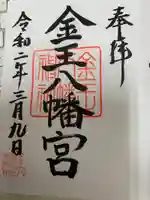 奉拝
金王八幡宮
令和二年三月九日